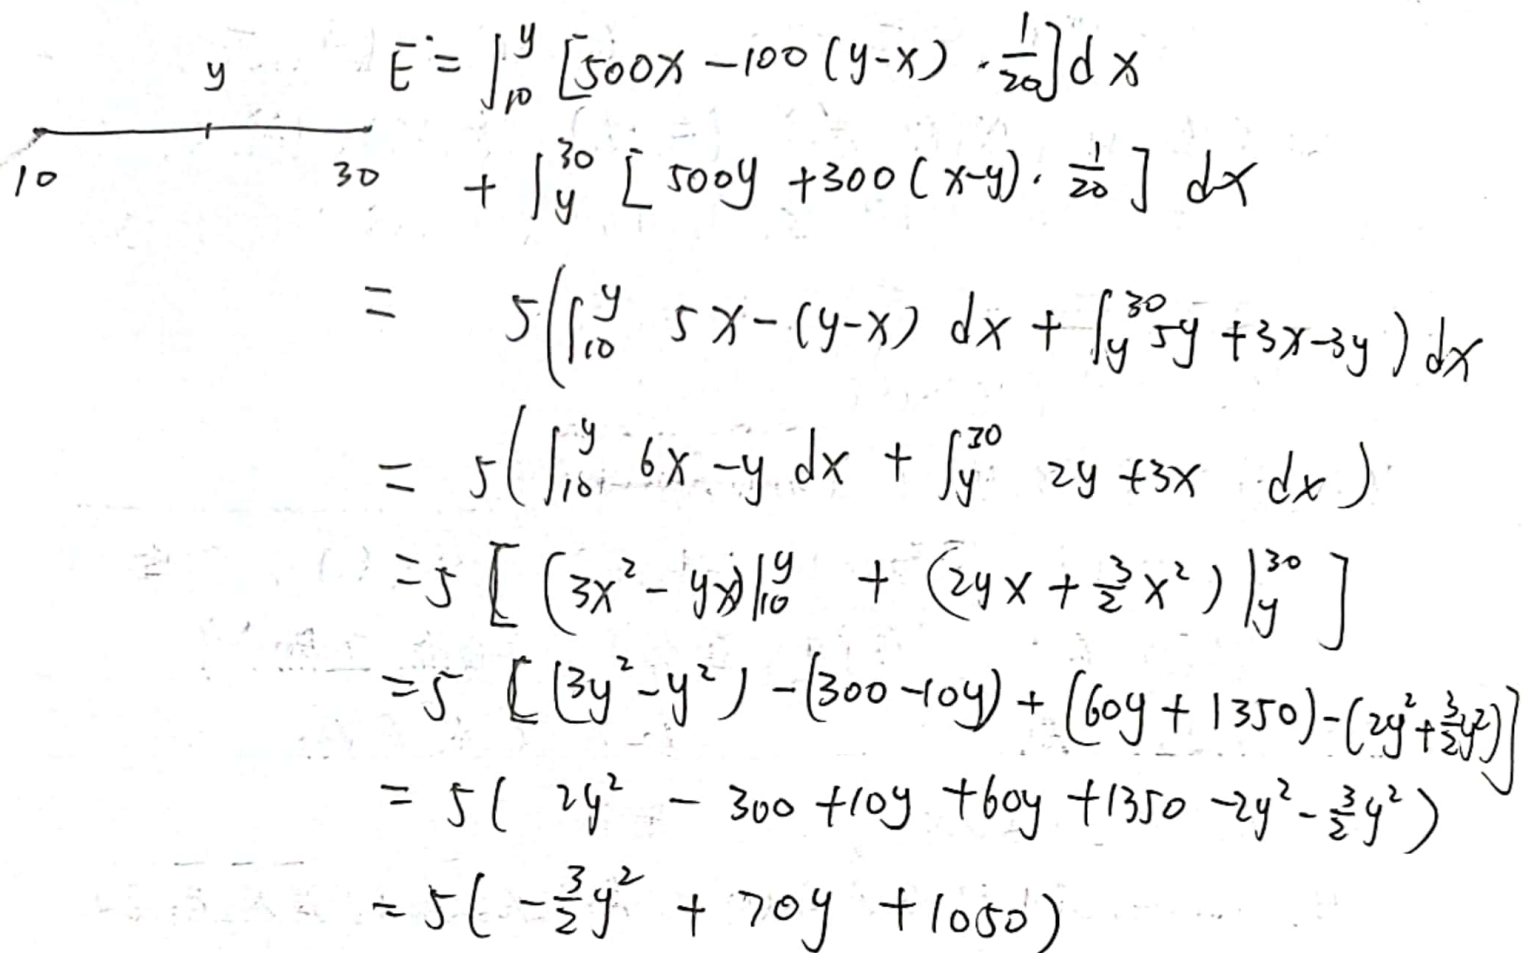 y
10 30
E = ∫₁₀^y [500x − 100(y−x) · 1/20] dx
+ ∫_y^30 [500y + 300(x−y) · 1/20] dx
= 5(∫₁₀^y 5x − (y−x) dx + ∫_y^30 5y + 3x − 3y) dx
= 5(∫₁₀^y 6x − y dx + ∫_y^30 2y + 3x dx)
= 5[(3x² − yx)|₁₀^y + (2yx + 3/2 x²)|_y^30]
= 5[(3y² − y²) − (300 − 10y) + (60y + 1350) − (2y² + 3/2 y²)]
= 5(2y² − 300 + 10y + 60y + 1350 − 2y² − 3/2 y²)
= 5(−3/2 y² + 70y + 1050)